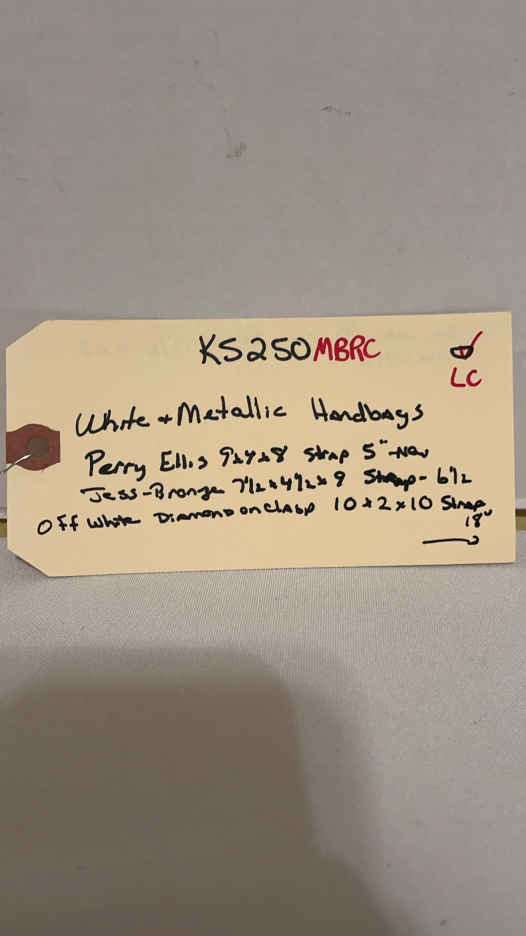 KS250MBRC
LC
White + Metallic Handbags
Perry Ellis 9x4x8 Strap 5" - New
Jess-Bronze 7 1/2 x 4 1/2 x 9 Strap - 6 1/2
Off White Diamond on Clasp 10 x 2 x 10 Strap
18"